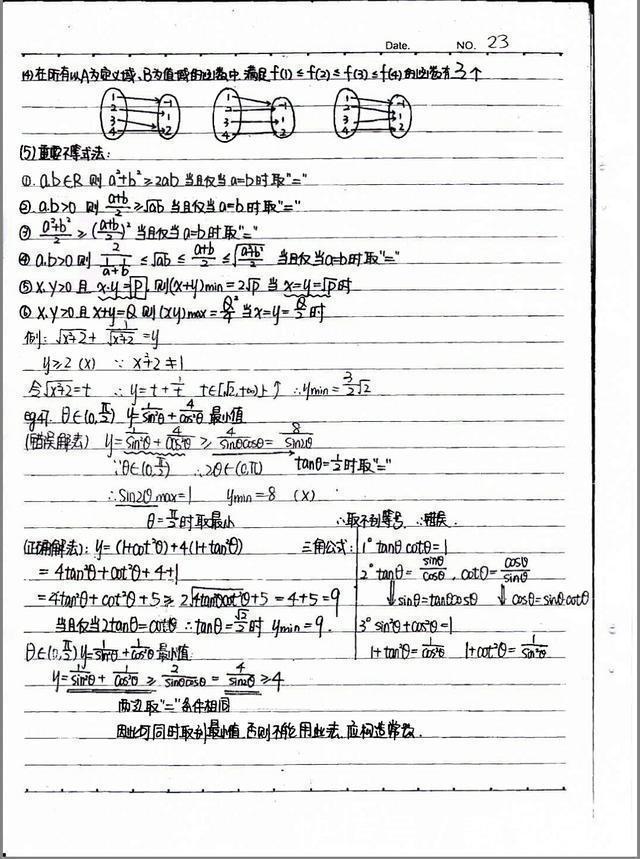 Date. NO. 23
(4) 在所有以A为定义域、B为值域的函数中 满足 f(1) ≤ f(2) ≤ f(3) ≤ f(4) 的函数有 3 个
1 2 3 4 -1 1 2
1 2 3 4 -1 1 2
1 2 3 4 -1 1 2
(5) 重要不等式法:
①. a.b∈R 则 a²+b² ≥ 2ab 当且仅当 a=b 时取"="
②. a.b>0 则 (a+b)/2 ≥ √ab 当且仅当 a=b 时取"="
③ (a²+b²)/2 ≥ ((a+b)/2)² 当且仅当 a=b 时取"="
④ a,b>0 则 2/(1/a+1/b) ≤ √ab ≤ (a+b)/2 ≤ √((a²+b²)/2) 当且仅当 a=b 时取"="
⑤ x,y>0 且 x·y=P, 则(x+y)min = 2√P 当 x=y=√P 时
⑥ x,y>0 且 x+y=Q 则 (xy)max = Q²/4 当 x=y= Q/2 时
例: √(x²+2) + 1/√(x²+2) = y
y≥2 (x) ∵ x²+2 ≠ 1
令 √(x²+2) = t ∴ y = t + 1/t t∈[√2,+∞)上↑ ∴ymin = 3/2 √2
eg47. θ∈(0,π/2) y = 1/sin²θ + 4/cos²θ 最小值
(错误解法) y = 1/sin²θ + 4/cos²θ ≥ 4/(sinθcosθ) = 8/sin2θ
∵θ∈(0,π/2) ∴2θ∈(0,π) tanθ=1/2时取"="
∴sin2θ max=1 ymin=8 (x)
θ=π/2时取最小 ∴取不到等号 ∴错误.
(正确解法): y = (1+cot²θ)+4(1+tan²θ)
= 4tan²θ+cot²θ+4+1
= 4tan²θ+cot²θ+5 ≥ 2√(4tan²θcot²θ)+5 = 4+5 = 9
当且仅当 2tanθ=cotθ ∴tanθ=√2/2 时 ymin=9.
三角公式: 1° tanθ cotθ=1
2° tanθ = sinθ/cosθ , cotθ = cosθ/sinθ
⇓ sinθ=tanθcosθ ⇓ cosθ=sinθ·cotθ
3° sin²θ+cos²θ=1
1+tan²θ=1/cos²θ 1+cot²θ=1/sin²θ
θ∈(0,π/2) y=1/sin²θ+1/cos²θ 最小值
y = 1/sin²θ + 1/cos²θ ≥ 2/(sinθcosθ) = 4/sin2θ ≥ 4
两边取"="条件相同
因此可同时取到最小值, 否则不能用此法, 应构造常数.